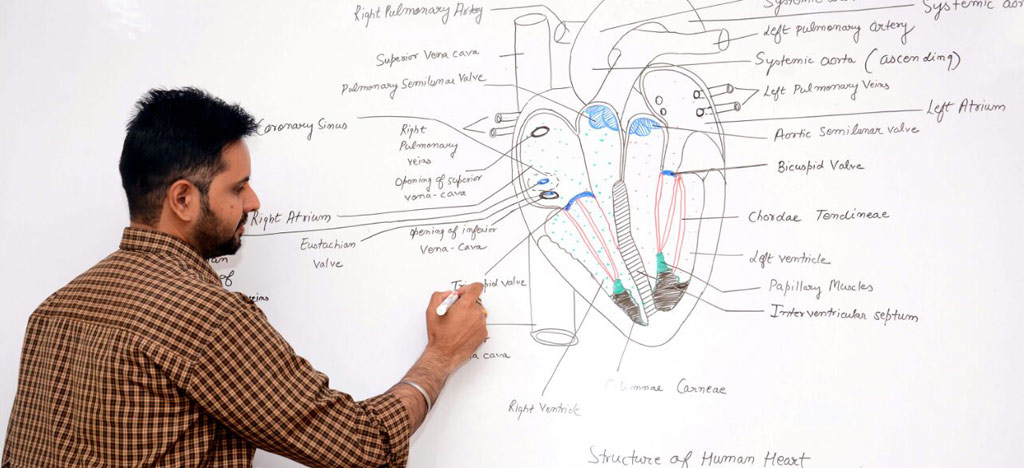 Right Pulmonary Artery
Superior Vena cava
Pulmonary Semilunar Valve
Coronary Sinus
Right
Pulmonary
veins
Opening of superior
vena-cava
Right Atrium
Eustachian
valve
Opening of inferior
Vena-Cava
of
valve
cava
Right Ventricle
Systemic
Systemic
Left pulmonary artery
Systemic aorta (ascending)
Left Pulmonary Veins
Left Atrium
Aortic Semilunar valve
Bicuspid Valve
Chordae Tendineae
Left ventricle
Papillary Muscles
Interventricular septum
Carneae
Structure of Human Heart